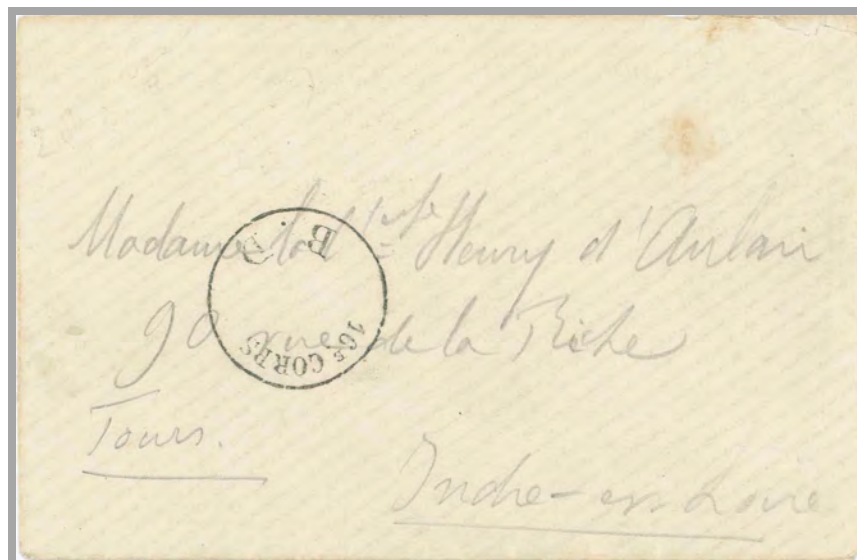 Madame la V^tesse Henry d'Aulan
90 rue de la Riche
Tours.
Indre-en-Loire
16E CORPS
B.